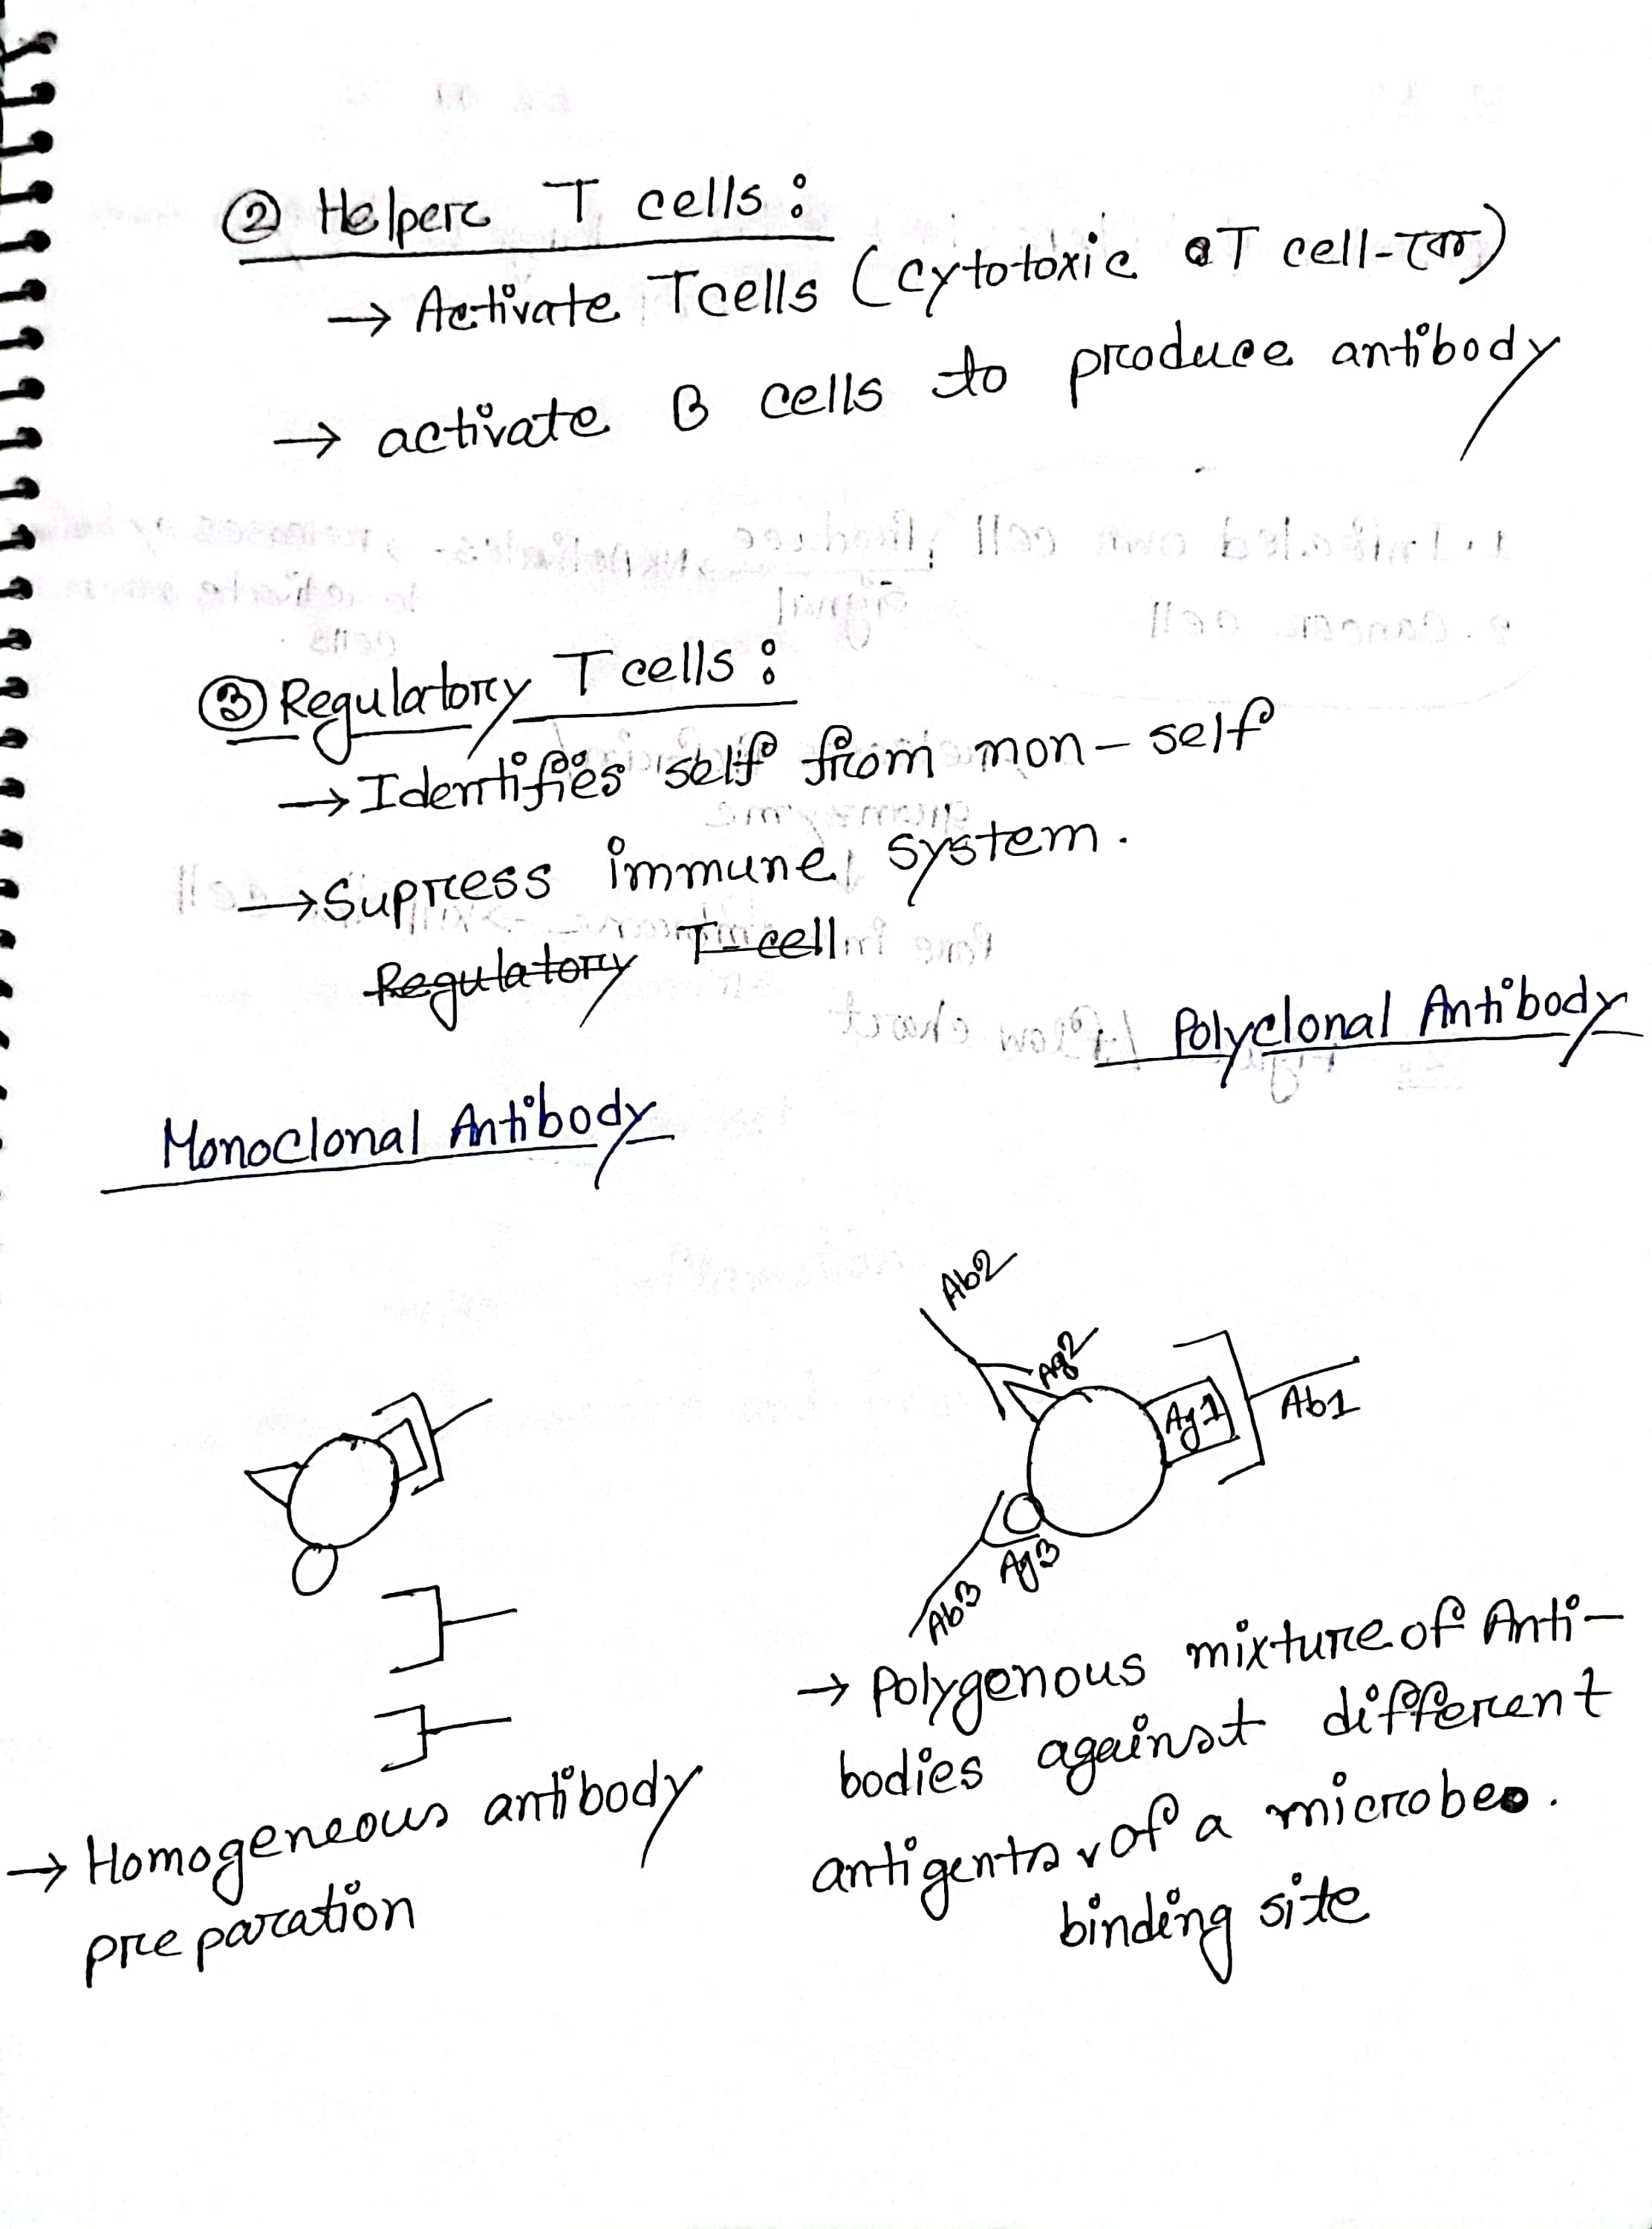 ② Helper T cells :
→ Activate T cells (cytotoxic T cell-কে)
→ activate B cells to produce antibody
③ Regulatory T cells :
→ Identifies self from non-self
→ Supress immune system.
Regulatory T-cell
Polyclonal Antibody
Monoclonal Antibody
Ab2
Ag2
Ag1
Ab1
Ag3
Ab3
→ Homogeneous antibody
preparation
→ Polygenous mixture of Anti-
bodies against different
of a microbe.
binding site